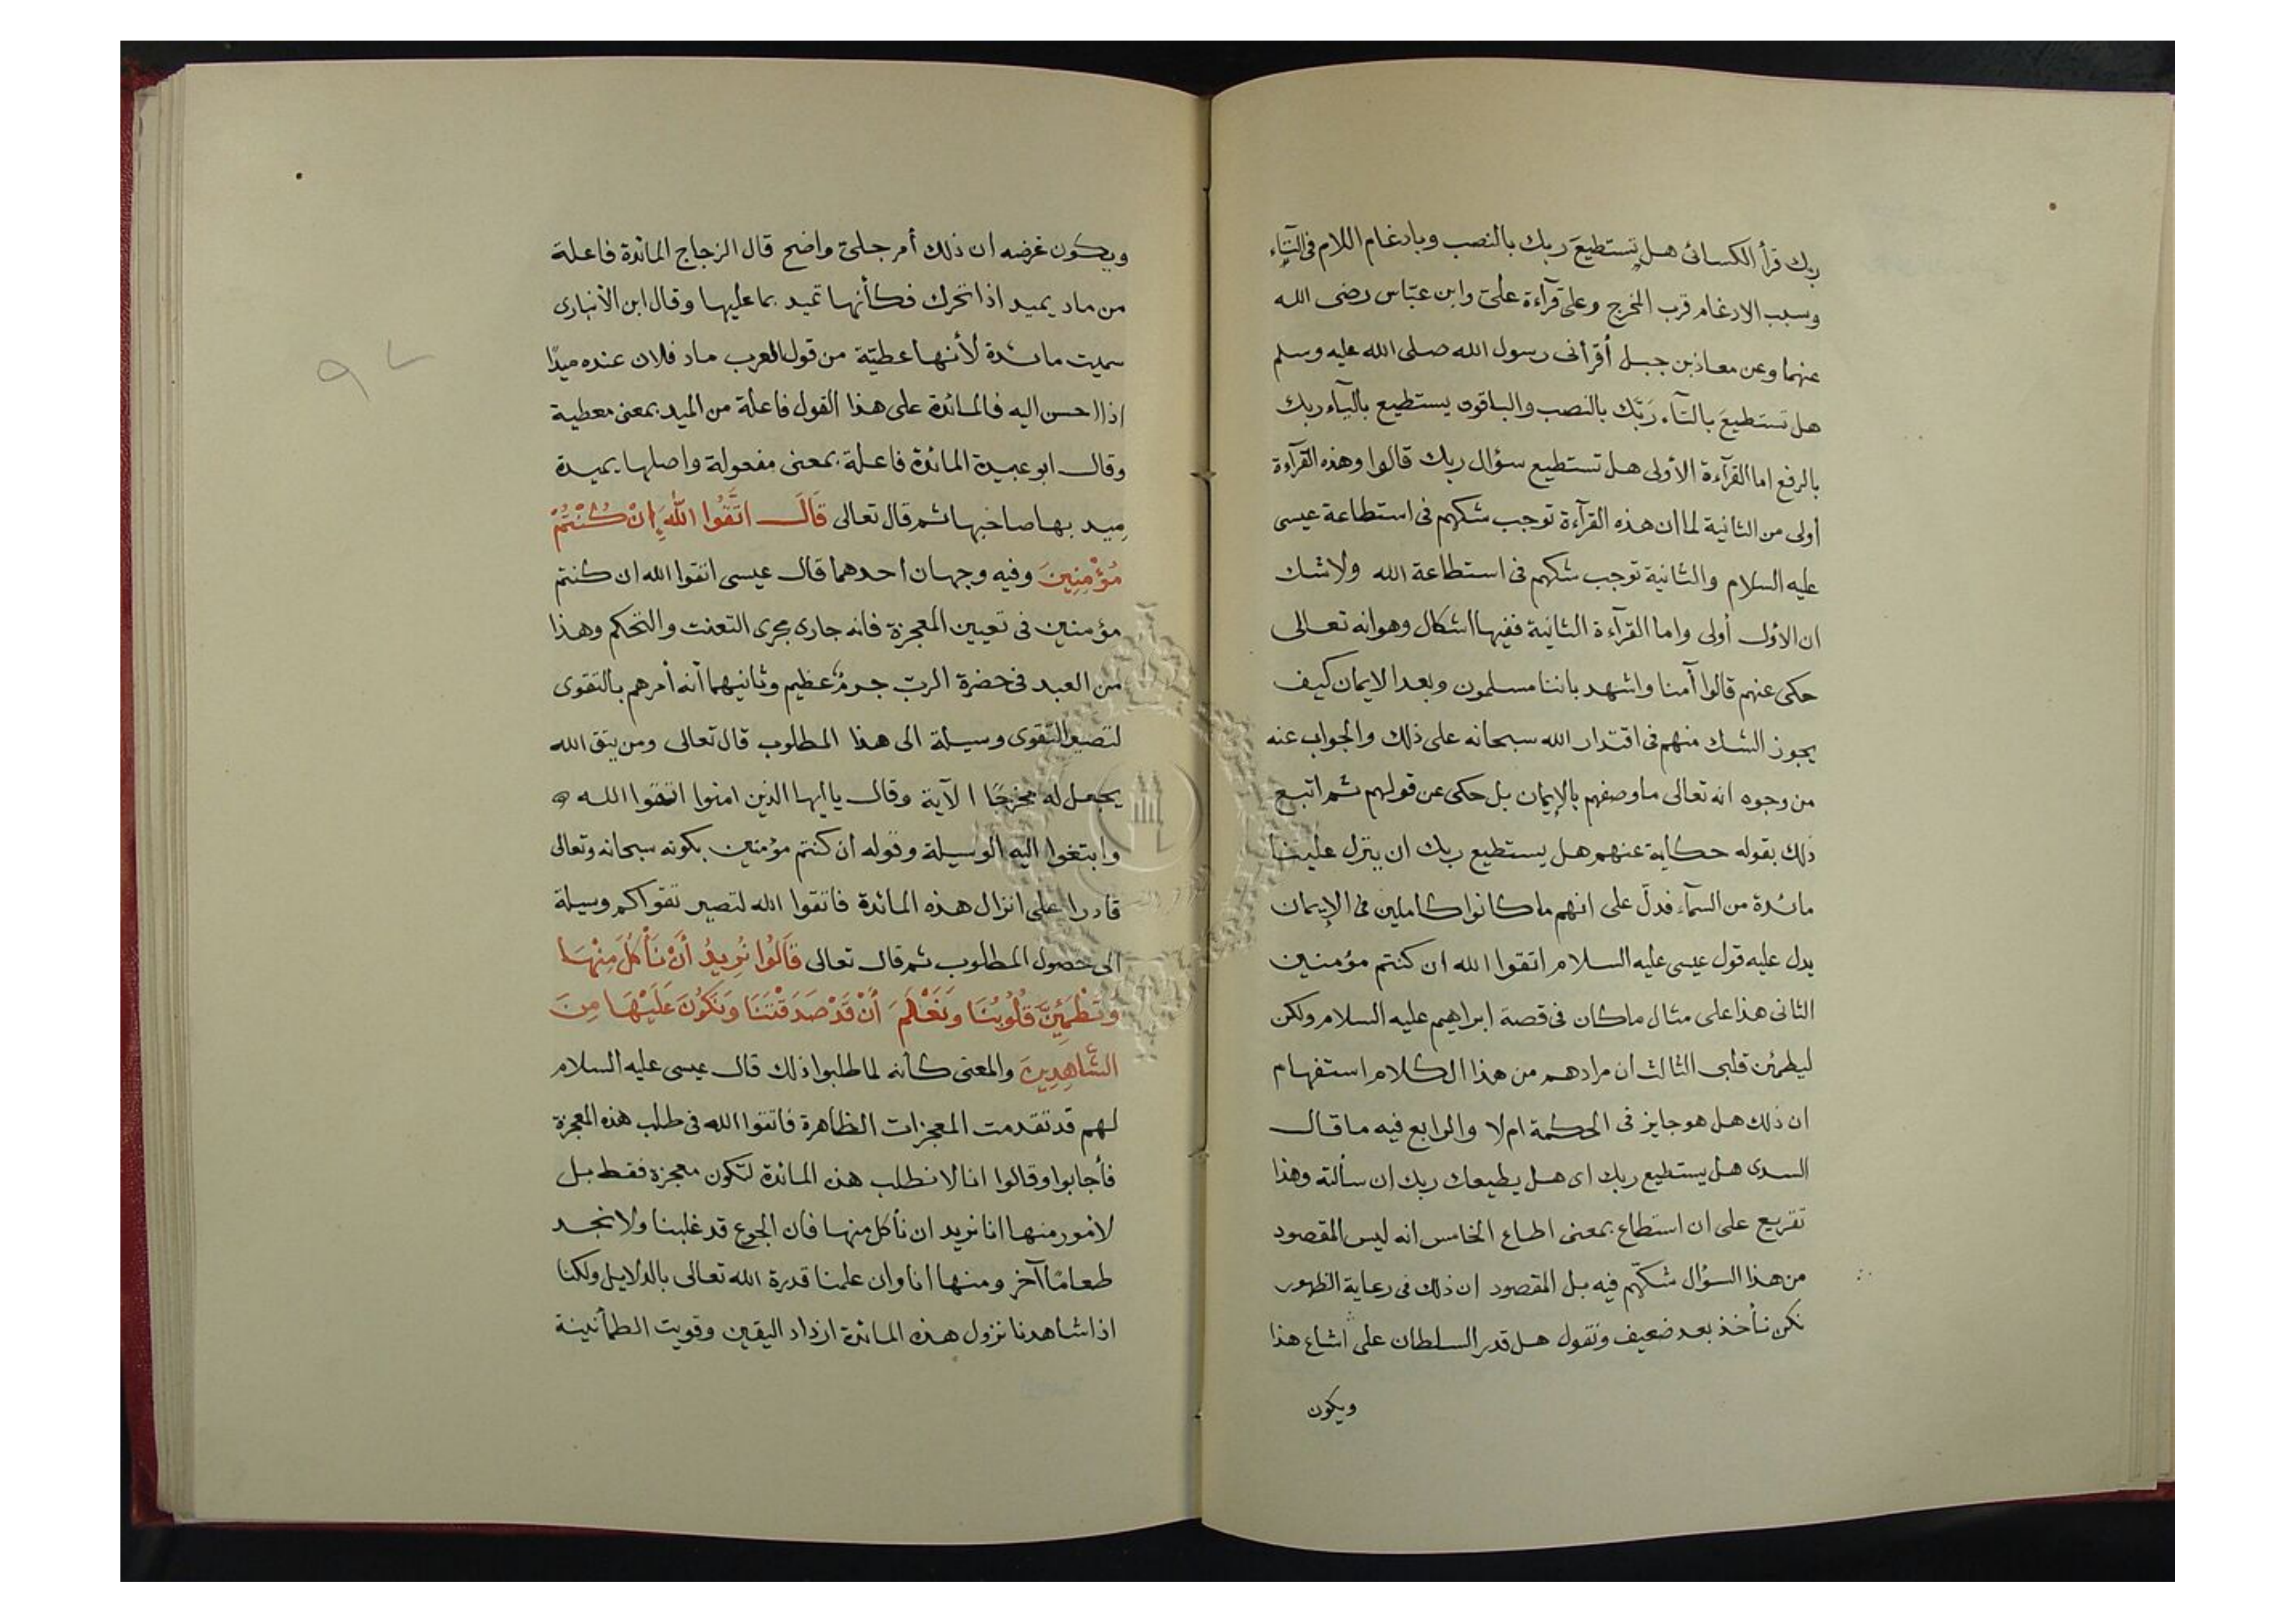 ربك قرأ الكسائى هل تستطيعَ ربك بالنصب وبادغام اللام فى التآء
وسبب الادغام قرب المخرج وعلى قرآءة علىّ وابن عبّاس رضى الله
عنهما وعن معاذ بن جبل أقرأنى رسول الله صلى الله عليه وسلم
هل تستطيعَ بالتآء ربَّك بالنصب والباقون يستطيع باليآء ربك
بالرفع اما القرآءة الأولى هل تستطيع سؤال ربك قالوا وهذه القرآءة
أولى من الثانية لما ان هذه القرآءة توجب شكهم فى استطاعة عيسى
عليه السلام والثانية توجب شكهم فى استطاعة الله ولا شك
ان الأول أولى واما القرآءة الثانية ففيها اشكال وهو انه تعالى
حكى عنهم قالوا آمنا واشهد باننا مسلمون وبعد الايمان كيف
يجوز الشك منهم فى اقتدار الله سبحانه على ذلك والجواب عنه
من وجوه انه تعالى ما وصفهم بالإيمان بل حكى عن قولهم ثم اتبع
ذلك بقوله حكاية عنهم هل يستطيع ربك ان ينزل علينا
مائدة من السمآء فدلّ على انهم ما كانوا كاملين فى الإيمان
يدل عليه قول عيسى عليه السلام اتقوا الله ان كنتم مؤمنين
الثانى هذا على مثال ما كان فى قصة ابراهيم عليه السلام ولكن
ليطمئن قلبى الثالث ان مرادهم من هذا الكلام استفهام
ان ذلك هل هو جايز فى الحكمة ام لا والرابع فيه ما قال
السدى هل يستطيع ربك اى هل يطيعك ربك ان سألته وهذا
تفريع على ان استطاع بمعنى اطاع الخامس انه ليس المقصود
من هذا السؤال شكّهم فيه بل المقصود ان ذلك فى رعاية الظهور
نكن نأخذ بعد ضعيف ونقول هل قدر السلطان على اشاع هذا
ويكون
ويكون غرضه ان ذلك أمر جلىّ واضح قال الزجاج المائدة فاعلة
من ماد يميد اذا تحرك فكأنها تميد بما عليها وقال ابن الأنبارى
سميت مائدة لأنها عطيّة من قول العرب ماد فلان عنده ميدًا
اذا احسن اليه فالمائدة على هذا القول فاعلة من الميد بمعنى معطية
وقال ابو عبيدة المائدة فاعلة بمعنى مفعولة واصلها يميدة
ميد بها صاحبها ثم قال تعالى قَالَ اتَّقُوا اللَّهَ إِنْ كُنْتُمْ
مُؤْمِنِينَ وفيه وجهان احدهما قال عيسى اتقوا الله ان كنتم
مؤمنين فى تعيين المعجزة فانه جارى مجرى التعنت والتحكم وهذا
من العبد فى حضرة الربّ جرمٌ عظيم وثانيهما أنه أمرهم بالتقوى
لتصير التقوى وسيلة الى هذا المطلوب قال تعالى ومن يتق الله
يجعل له مخرجًا الآية وقال يا ايها الذين امنوا اتقوا الله
وابتغوا اليه الوسيلة وقوله ان كنتم مؤمنين بكونه سبحانه وتعالى
قادرا على انزال هذه المائدة فاتقوا الله لتصير تقواكم وسيلة
الى حصول المطلوب ثم قال تعالى قَالُوا نُرِيدُ أَنْ نَأْكُلَ مِنْهَا
وَتَطْمَئِنَّ قُلُوبُنَا وَنَعْلَمَ أَنْ قَدْ صَدَقْتَنَا وَنَكُونَ عَلَيْهَا مِنَ
الشَّاهِدِينَ والمعنى كأنه لما طلبوا ذلك قال عيسى عليه السلام
لهم قد تقدمت المعجزات الظاهرة فاتقوا الله فى طلب هذه المعجزة
فأجابوا وقالوا انا لا نطلب هذه المائدة لتكون معجزة فقط بل
لأمور منها انا نريد ان نأكل منها فان الجوع قد غلبنا ولا نجد
طعامًا آخر ومنها انا وان علمنا قدرة الله تعالى بالدلايل ولكنا
اذا شاهدنا نزول هذه المائدة ازداد اليقين وقويت الطمأنينة